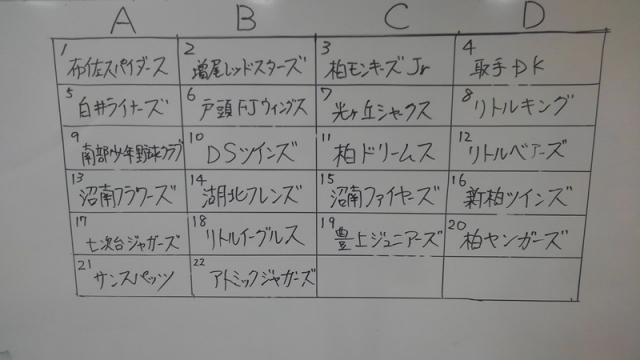 A B C D
1 布佐スパイダース 2 増尾レッドスターズ 3 柏モンキーズJr 4 取手DK
5 白井ライナーズ 6 戸頭FJウィングス 7 光ヶ丘シャークス 8 リトルキング
9 南部少年野球クラブ 10 DSツインズ 11 柏ドリームス 12 リトルベアーズ
13 沼南フラワーズ 14 湖北フレンズ 15 沼南ファイヤーズ 16 新柏ツインズ
17 七次台ジャガーズ 18 リトルイーグルス 19 豊上ジュニアーズ 20 柏ヤンガーズ
21 サンスパッツ 22 アトミックジャガーズ